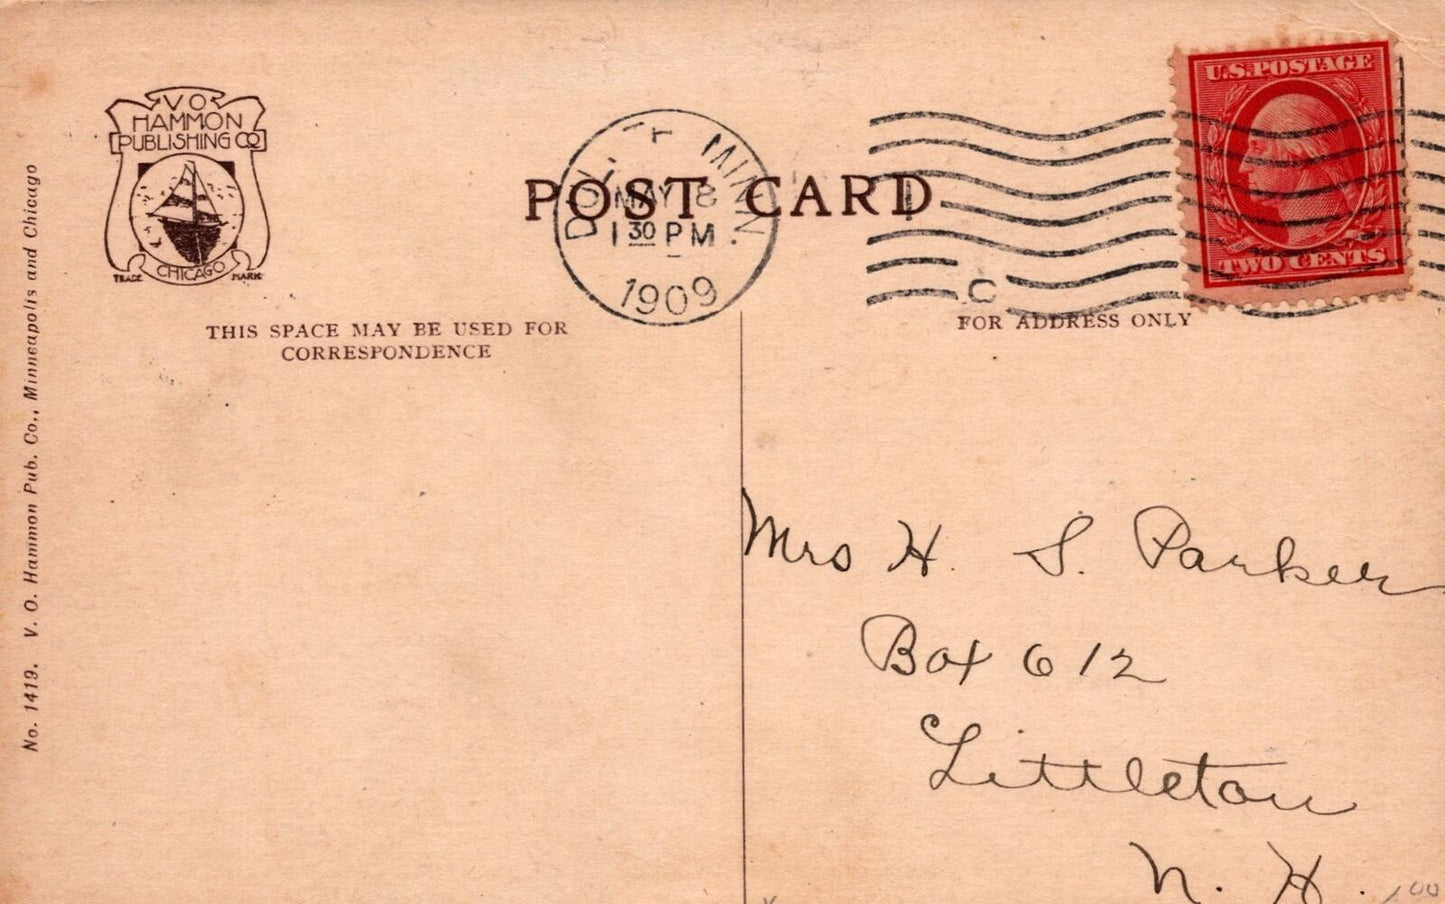 V O
HAMMON
PUBLISHING CO
CHICAGO
TRADE MARK
POST CARD
MINN.
MAY 8
1 30 PM
1909
C
U.S.POSTAGE
TWO CENTS
THIS SPACE MAY BE USED FOR
CORRESPONDENCE
FOR ADDRESS ONLY
No. 1419. V. O. Hammon Pub. Co., Minneapolis and Chicago
Mrs H. S. Parker
Box 612
Littleton
N. H.